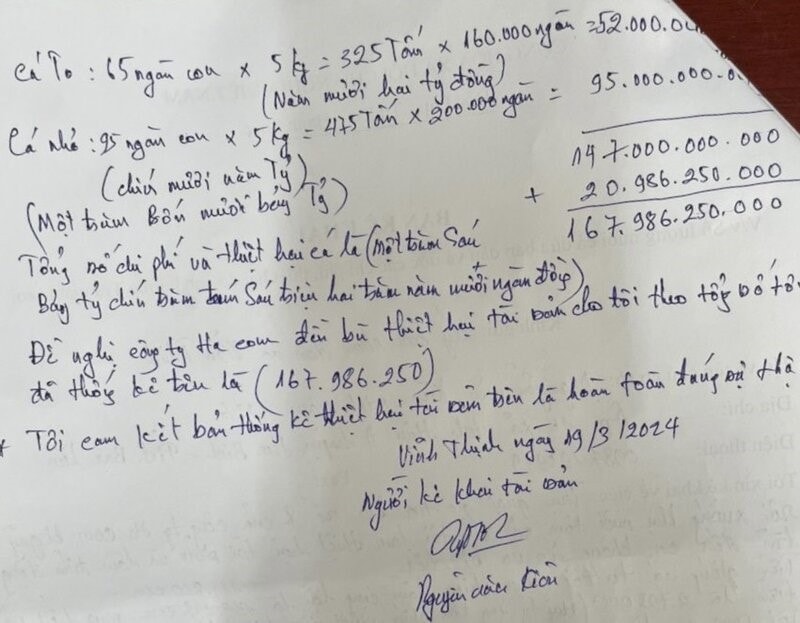 Cá To : 65 ngàn con × 5 kg = 325 Tấn × 160.000 ngàn = 52.000.0
(Năm mười hai tỷ đồng)
Cá nhỏ : 95 ngàn con × 5 kg = 475 Tấn × 200.000 ngàn = 95.000.000.0
(chín mười năm Tỷ)
147.000.000.000
(Một trăm Bốn mươi bảy Tỷ)
+ 20.986.250.000
167.986.250.000
Tổng số chi phí và thiệt hại cá là (Một trăm Sáu
Bảy tỷ chín trăm tám Sáu triệu hai trăm năm mười ngàn đồng)
Đề nghị công ty Ha com đền bù thiệt hại tài sản cho tôi theo tổng số tô
đã thống kê trên là (167.986.250)
* Tôi cam kết bản thống kê thiệt hại tài sản trên là hoàn toàn đúng sự thậ
Vĩnh Thịnh ngày 19/3/2024
Người kê khai tài sản
Nguyễn